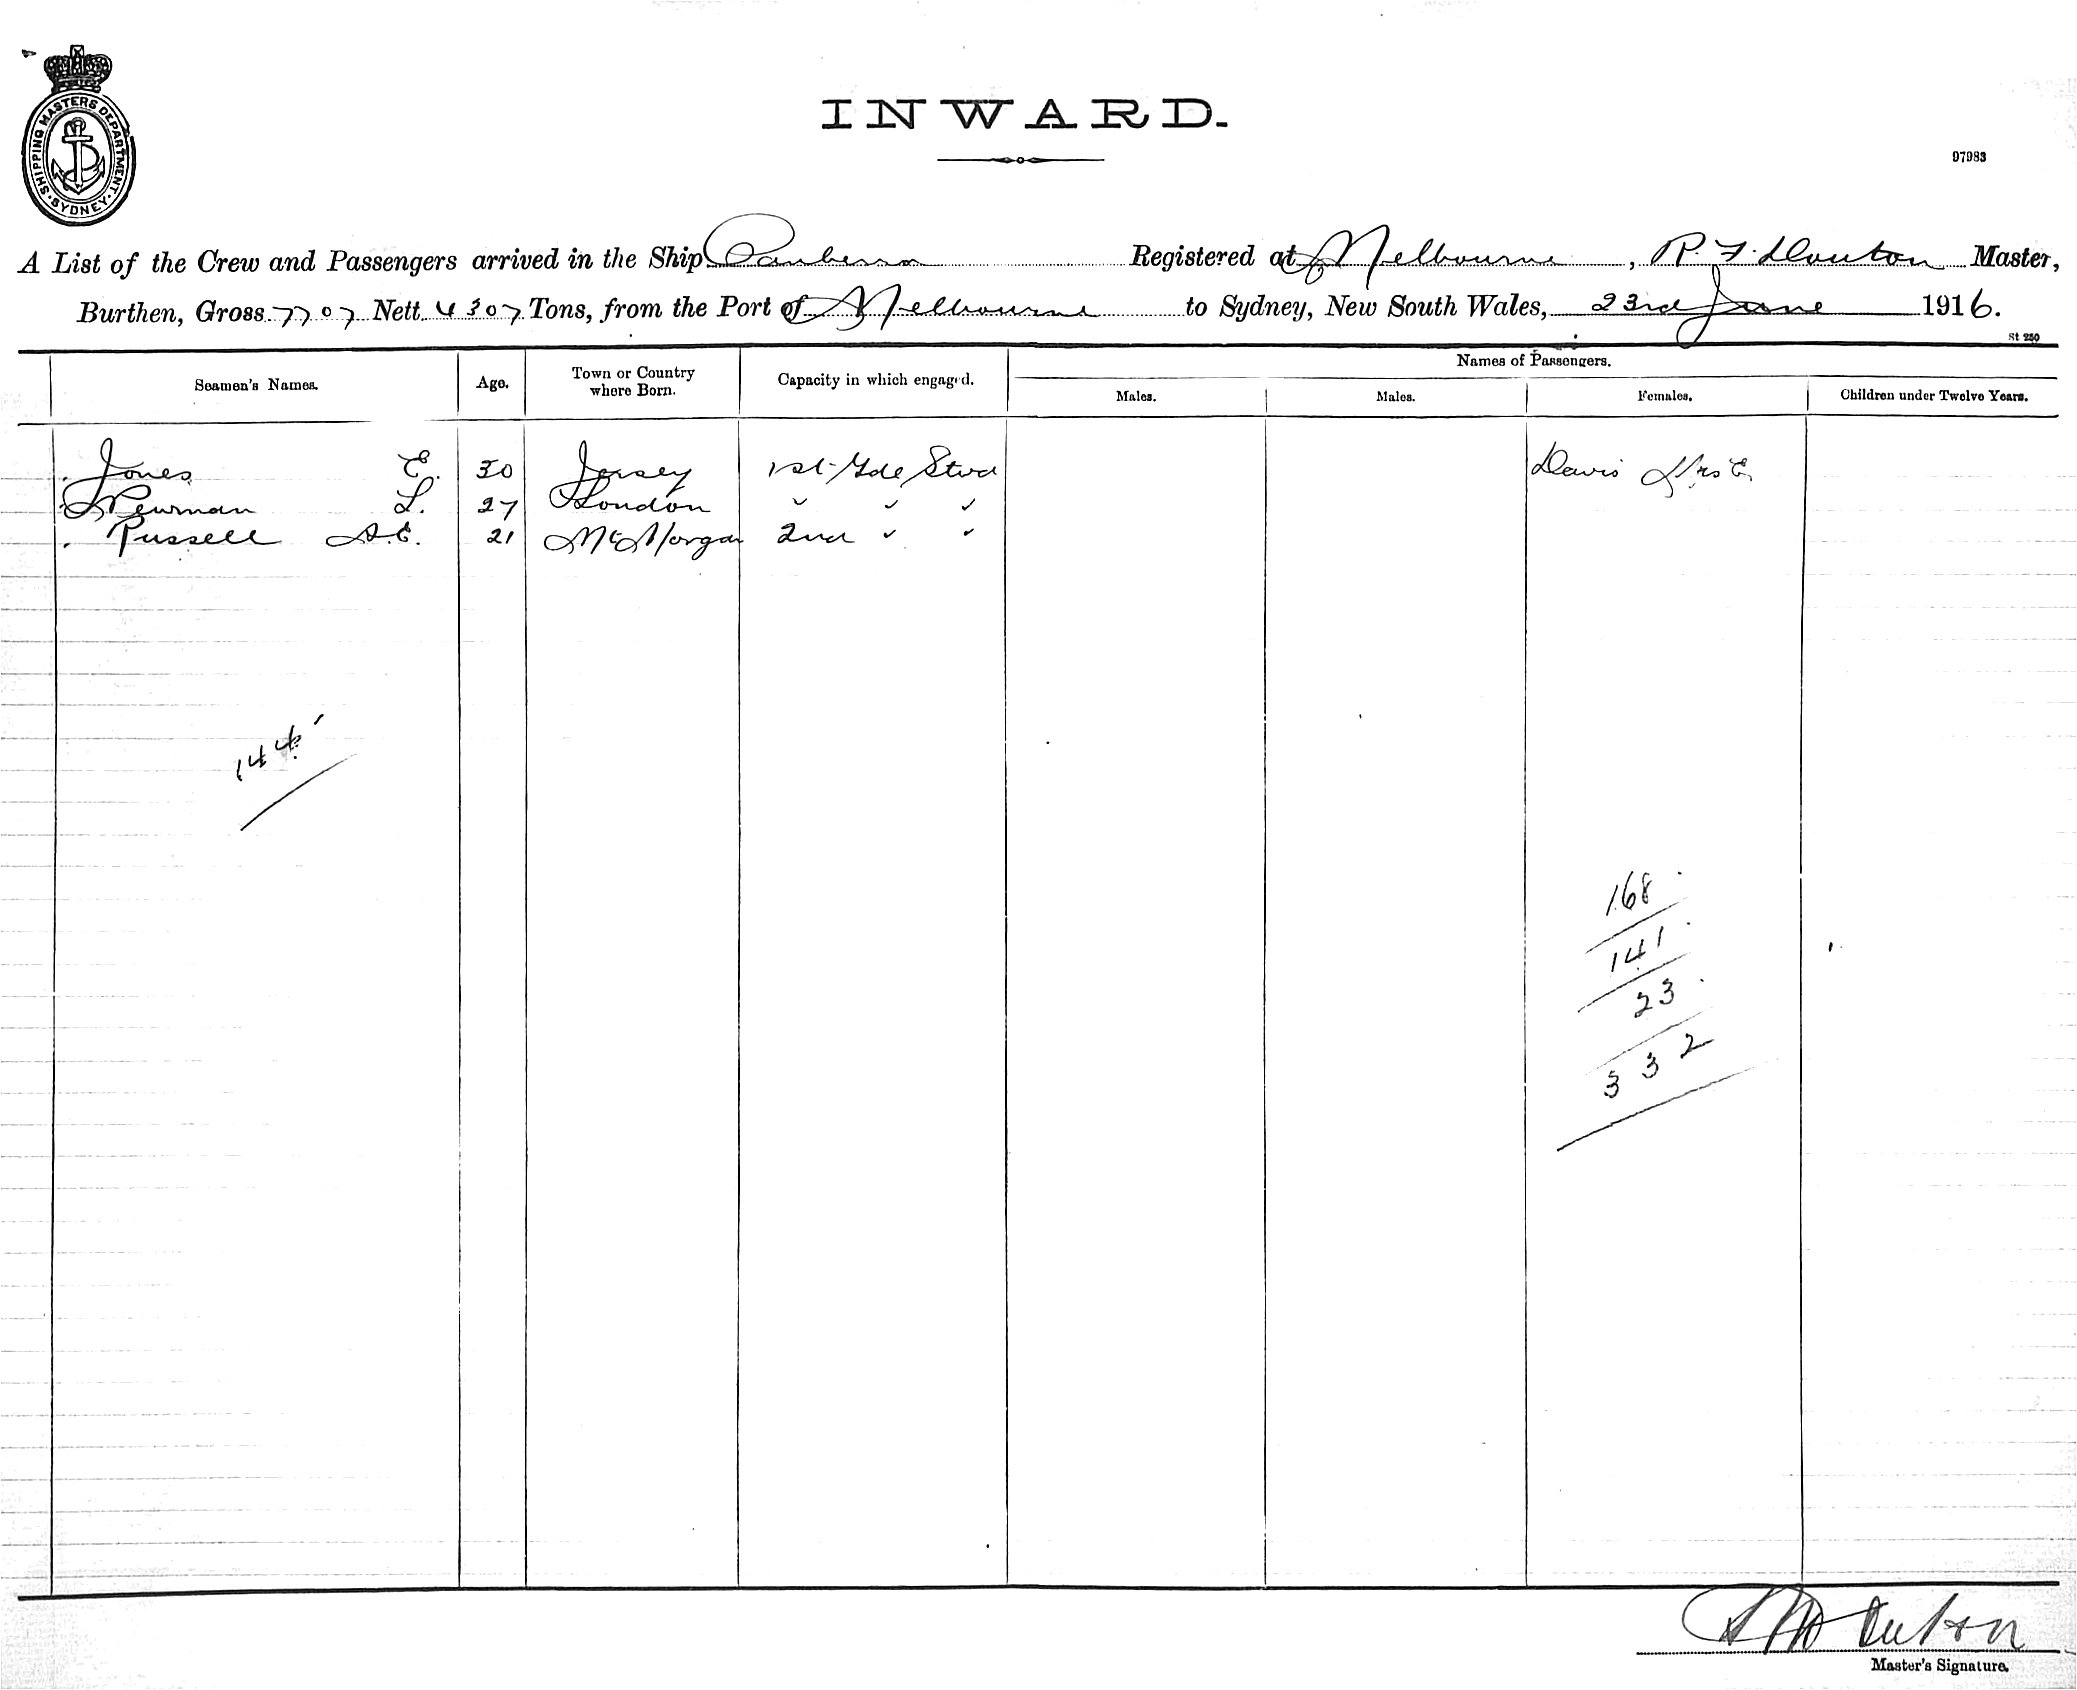 SHIPPING MASTERS DEPARTMENT. SYDNEY.
INWARD.
97983
A List of the Crew and Passengers arrived in the Ship Canberra Registered at Melbourne, R. F. Douton Master,
Burthen, Gross 7707 Nett 4307 Tons, from the Port of Melbourne to Sydney, New South Wales, 23rd June 1916.
St 250
Names of Passengers.
Seamen's Names. Age. Town or Country where Born. Capacity in which engaged. Males. Males. Females. Children under Twelve Years.
Jones E. 30 Jersey 1st Gde Stwd Davis Mrs E.
Newman L. 27 London " " "
Russell A.E. 21 Mt Morgan 2nd " "
144
168
141
23
332
Master's Signature.